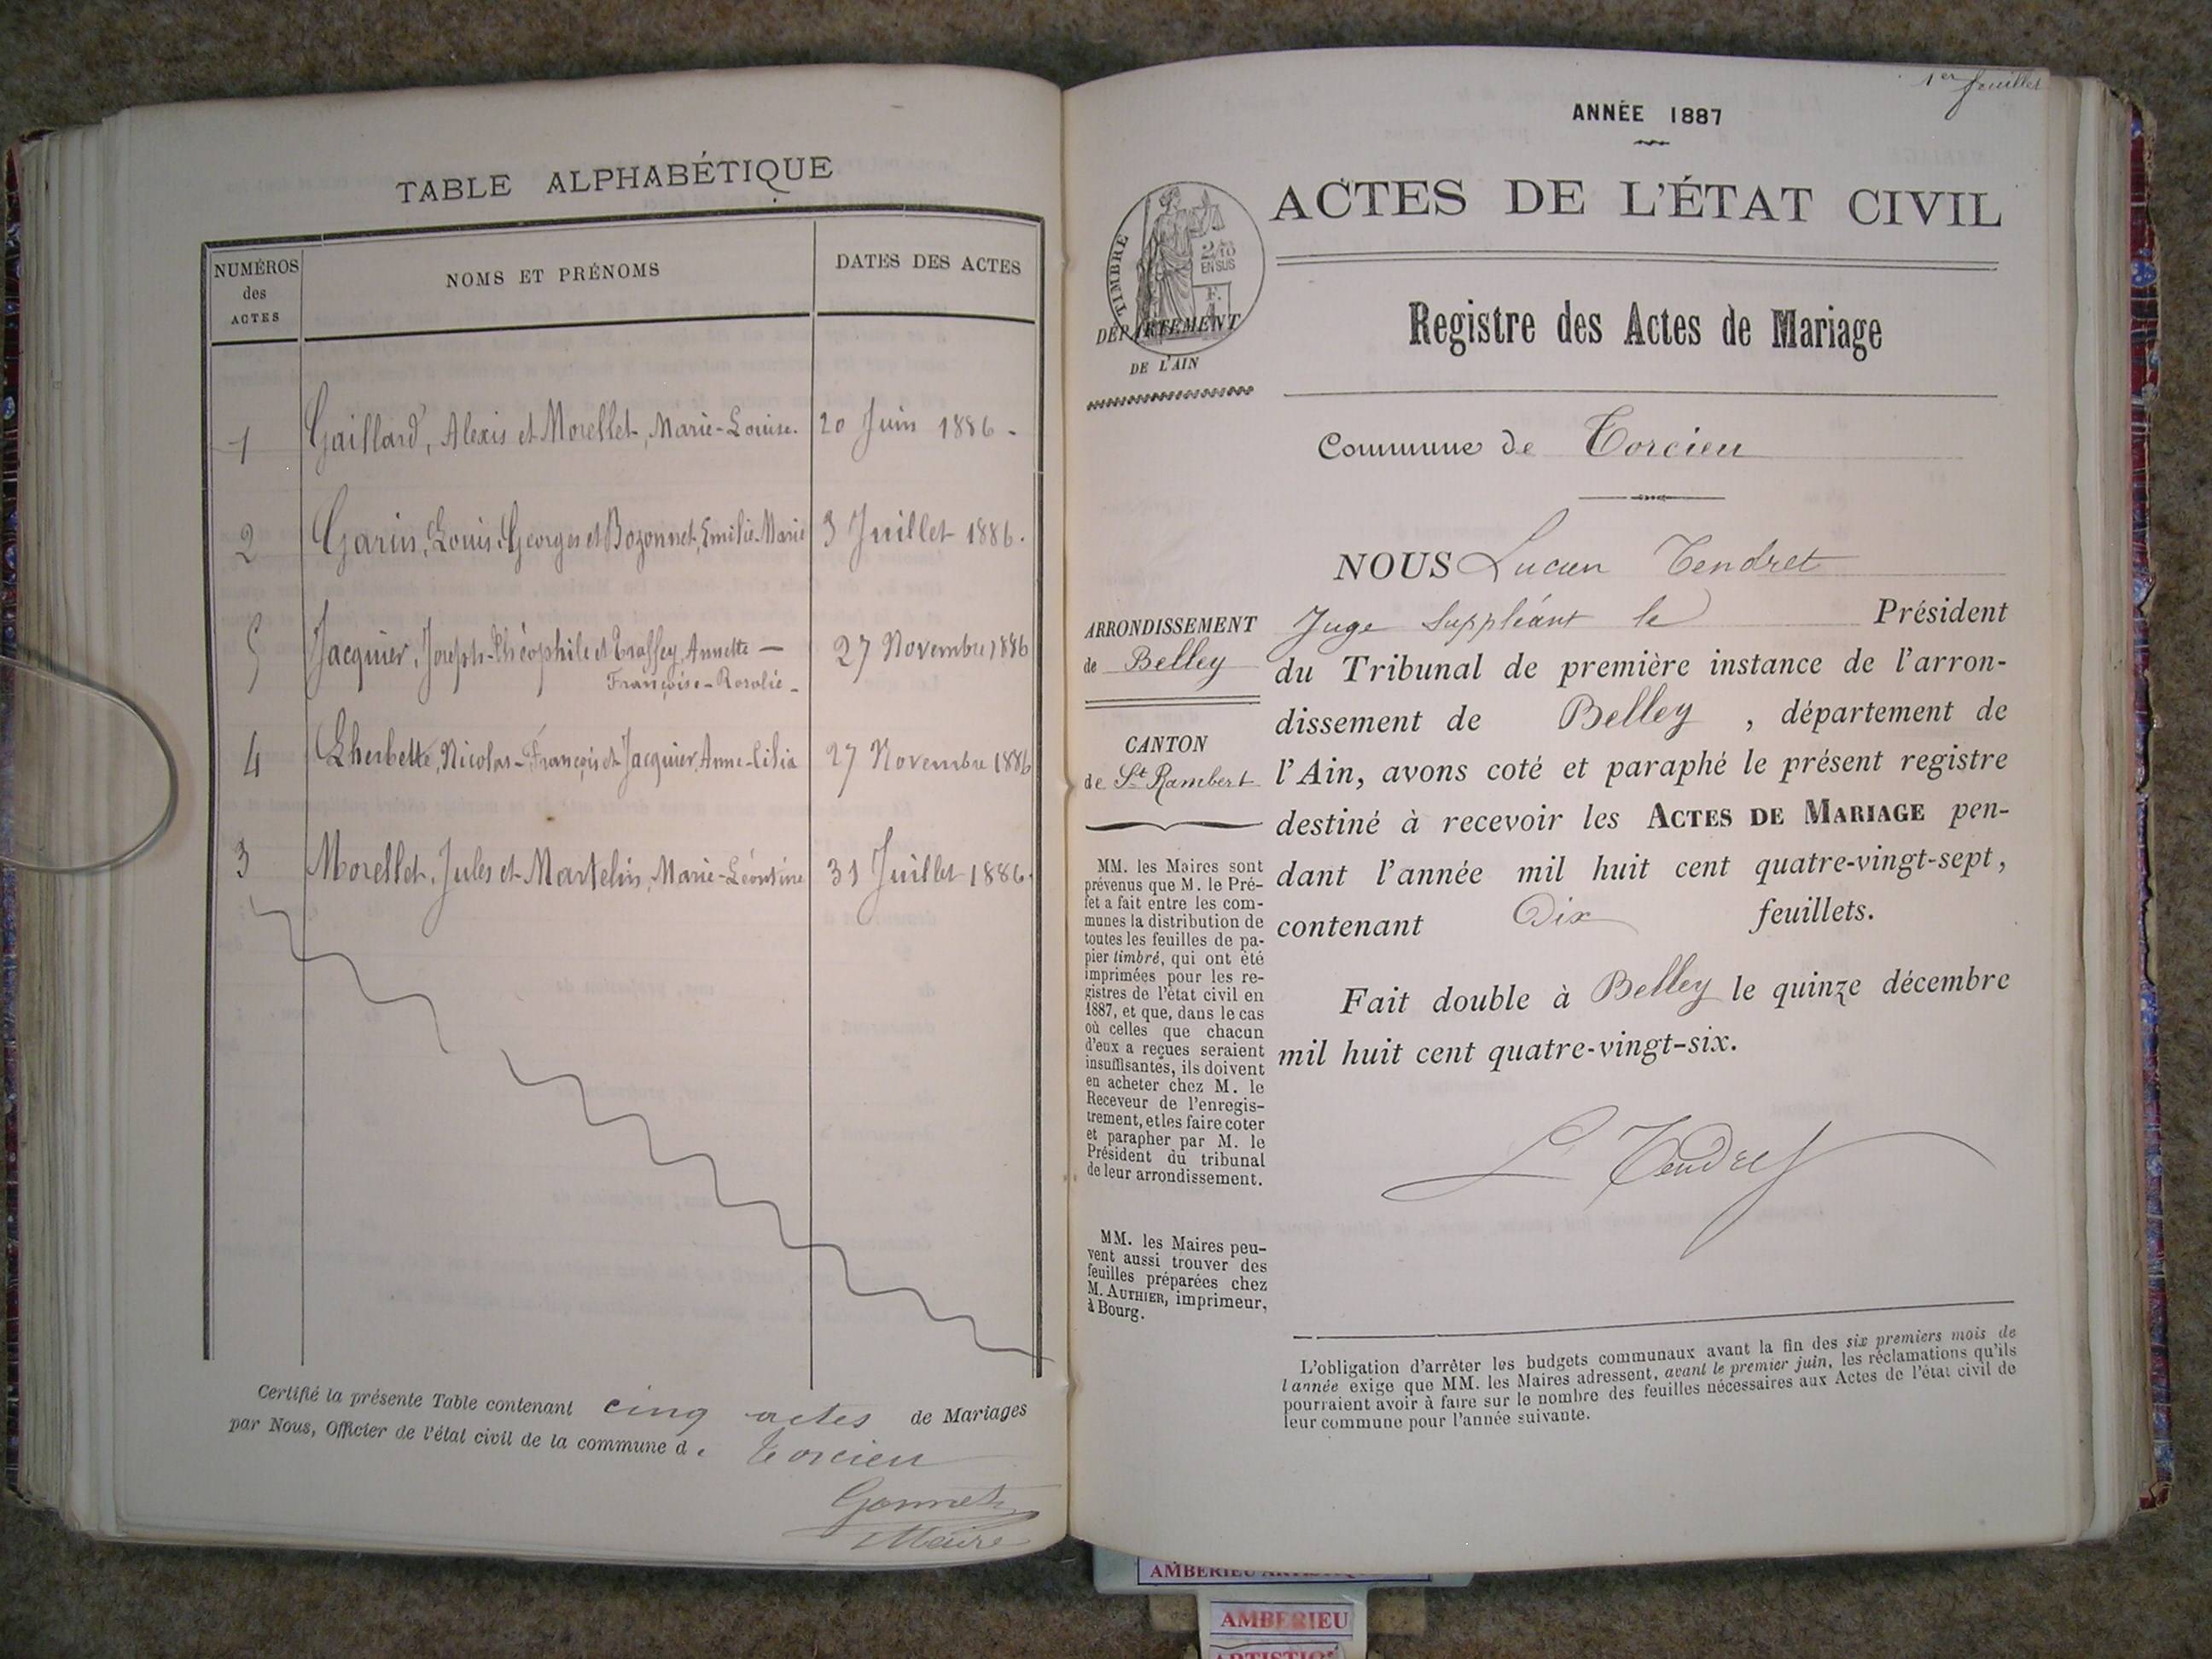 TABLE ALPHABÉTIQUE
NUMÉROS
des
ACTES
NOMS ET PRÉNOMS
DATES DES ACTES
1 Gaillard, Alexis et Morellet, Marie-Louise. 20 Juin 1886.
2 Garin, Louis-Georges et Bozonnet, Emilie-Marie 3 Juillet 1886.
5 Jacquier, Joseph-Théophile et Annette — 27 Novembre 1886
Françoise-Rosalie.
4 Lherbette, Nicolas-François et Jacquier, Anne-Célia 27 Novembre 1886
3 Morellet, Jules et Martelin, Marie-Léontine 31 Juillet 1886.
Certifié la présente Table contenant cinq actes de Mariages
par Nous, Officier de l'état civil de la commune de Torcieu
Gonnet
Maire
1er feuillet
ANNÉE 1887
ACTES DE L'ÉTAT CIVIL
TIMBRE
2/10
EN SUS
F.
DÉPARTEMENT
DE L'AIN
Registre des Actes de Mariage
Commune de Torcieu
ARRONDISSEMENT
de Belley
CANTON
de St Rambert
MM. les Maires sont
prévenus que M. le Pré-
fet a fait entre les com-
munes la distribution de
toutes les feuilles de pa-
pier timbré, qui ont été
imprimées pour les re-
gistres de l'état civil en
1887, et que, dans le cas
où celles que chacun
d'eux a reçues seraient
insuffisantes, ils doivent
en acheter chez M. le
Receveur de l'enregis-
trement, et les faire coter
et parapher par M. le
Président du tribunal
de leur arrondissement.
MM. les Maires peu-
vent aussi trouver des
feuilles préparées chez
M. AUTHIER, imprimeur,
à Bourg.
NOUS Lucien Tendret
Juge Suppléant le Président
du Tribunal de première instance de l'arron-
dissement de Belley, département de
l'Ain, avons coté et paraphé le présent registre
destiné à recevoir les ACTES DE MARIAGE pen-
dant l'année mil huit cent quatre-vingt-sept,
contenant Dix feuillets.
Fait double à Belley le quinze décembre
mil huit cent quatre-vingt-six.
L Tendret
L'obligation d'arrêter les budgets communaux avant la fin des six premiers mois de
l'année exige que MM. les Maires adressent, avant le premier juin, les réclamations qu'ils
pourraient avoir à faire sur le nombre des feuilles nécessaires aux Actes de l'état civil de
leur commune pour l'année suivante.
AMBERIEU
AMBERIEU